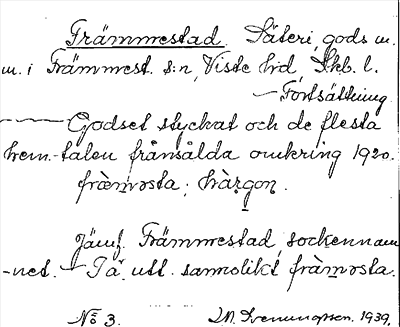 Främmestad. Säteri, gods m.
m. i Främmest. s:n, Viste hd, Skb. l.
— Fortsättning.
— Godset styckat och de flesta
hem-talen frånsålda omkring 1920.
fræmosta; hàrgon.
Jämf. Främmestad, sockennam
-net. — Tä. utt. sannolikt fràmosta.
No 3.
1939.